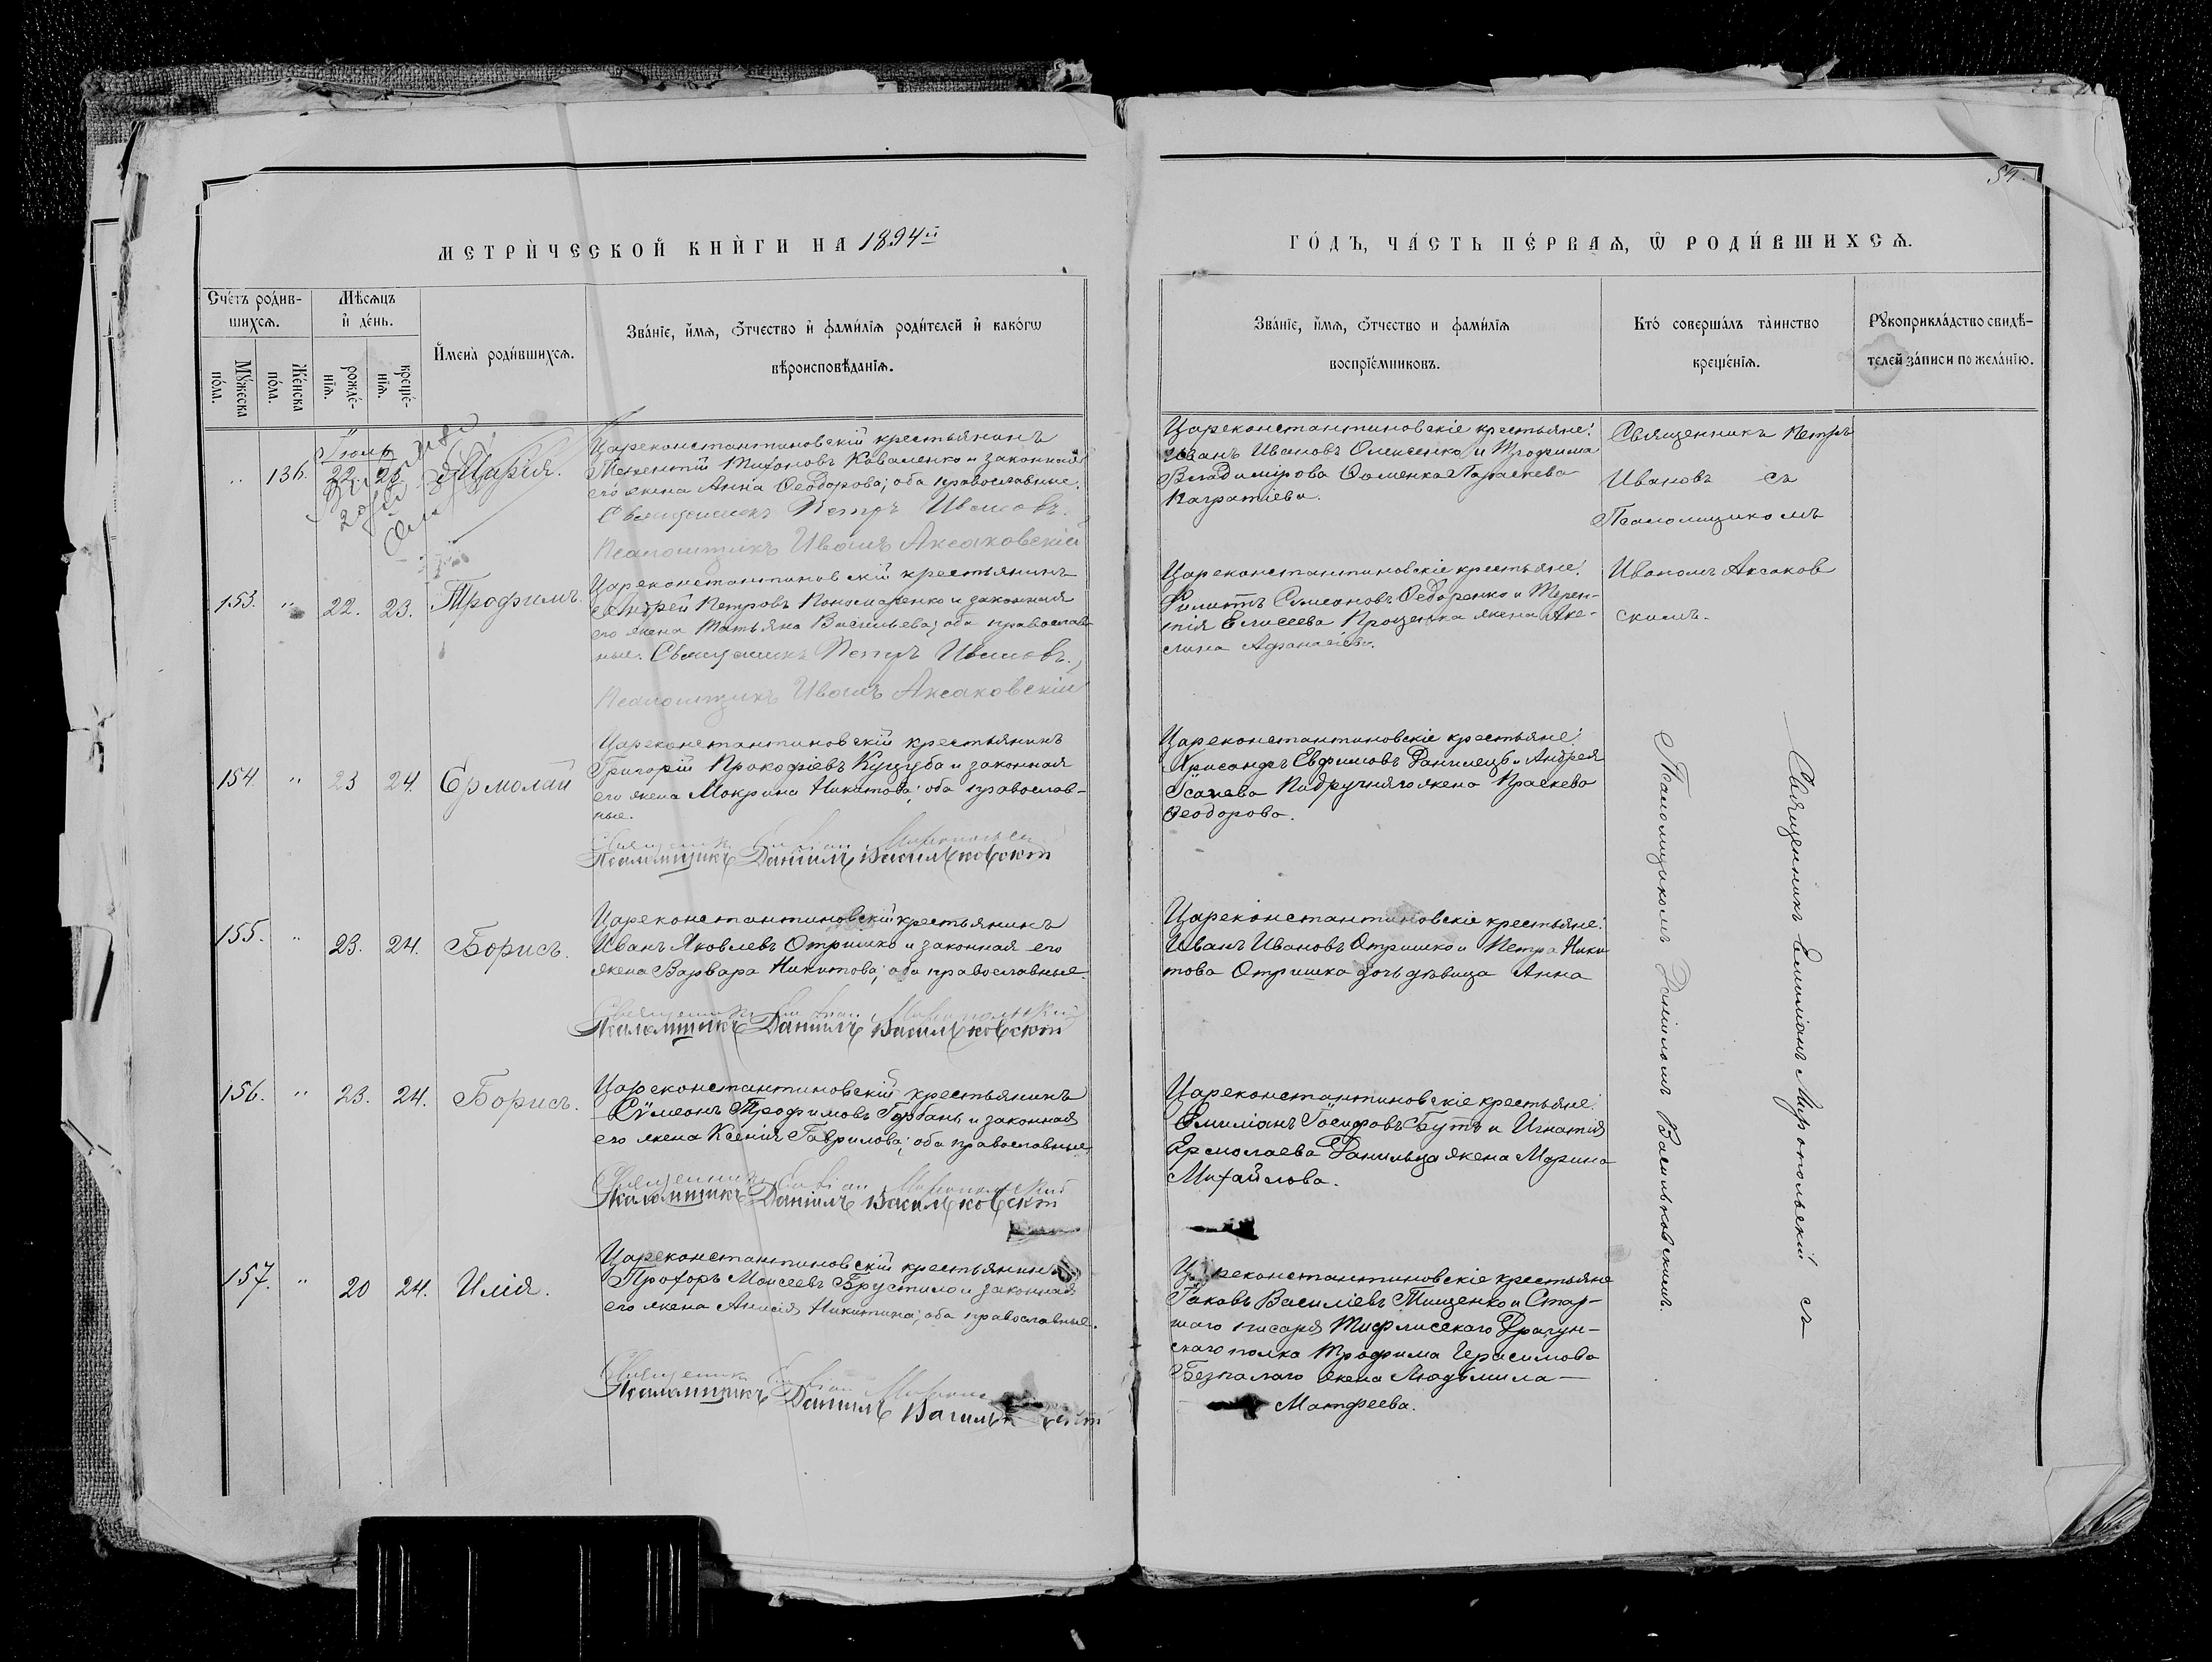 54.
МЕТРИ́ЧЕСКОЙ КНИ́ГИ НА 1894й
ГО́ДЪ, ЧА́СТЬ ПЕ́РВАѦ, Ѿ РОДИ́ВШИХСѦ.
Сче́тъ роди́в-
шихсѧ.
Мѣ́сѧцъ
и҆ де́нь.
И҆мена̀ роди́вшихсѧ.
Зва́нїе, и҆́мѧ, ѻ҆́тчество и҆ фами́лїѧ роди́телей и҆ како́гѡ
вѣроисповѣ́данїѧ.
Мꙋ́жеска
по́ла.
Же́нска
по́ла.
рожде́-
нїѧ.
креще́-
нїѧ.
Зва́нїе, и҆́мѧ, ѻ҆́тчество и фами́лїѧ
воспрїе́мниковъ.
Кто̀ соверша́лъ та́инство
креще́нїѧ.
Рꙋкоприкла́дство свидѣ́-
телей за́писи по жела́нїю.
Іюль
„ 136. 22. 23. Марія.
Цареконстантиновскій крестьянинъ
Терентій Тихоновъ Коваленко и законная
его жена Анна Ѳеодорова; оба православные.
Священникъ Петръ Ивановъ.
Псаломщикъ Иванъ Аксаковскій
Цареконстантиновскіе крестьяне:
Иванъ Ивановъ Олексенко и Трофима
Владимірова Фоменка Параскева
Каградіева.
Священникъ Петръ
Ивановъ съ
Псаломщикомъ
Иваномъ Аксаков
скимъ.
153. „ 22. 23. Трофимъ.
Цареконстантиновскій крестьянинъ
Андрей Петровъ Пономаренко и законная
его жена Татьяна Васильева; оба православ
ные. Священникъ Петръ Ивановъ.
Псаломщикъ Иванъ Аксаковскій
Цареконстантиновскіе крестьяне:
Филиппъ Сѵмеоновъ Ѳедоренко и Терен-
тія Елисеева Проценка жена Аке-
лина Афанасіева.
154. „ 23 24. Ермолай
Цареконстантиновскій крестьянинъ
Григорій Прокофіевъ Куцуба и законная
его жена Мокрина Никитова; оба православ-
ные.
Священникъ Емиліан Миропольскій
Псаломщикъ Даниілъ Васильковскій
Цареконстантиновскіе крестьяне:
Хрисанфъ Евфимовъ Данилецъ и Андрея
Исаиева Подручняго жена Праскева
Ѳеодорова.
155. „ 23. 24. Борисъ.
Цареконстантиновскій крестьянинъ
Иванъ Яковлевъ Отришко и законная его
жена Варвара Никитова; оба православные.
Священникъ Емиліан Миропольскій
Псаломщикъ Даниілъ Васильковскій
Цареконстантиновскіе крестьяне:
Иванъ Ивановъ Отришко и Петра Ники
това Отришка дочь дѣвица Анна
156. „ 23. 24. Борисъ.
Цареконстантиновскій крестьянинъ
Сѵмеонъ Трофимовъ Горбань и законная
его жена Ксенія Гаврилова; оба православные.
Священникъ Емиліан Миропольскій
Псаломщикъ Даниілъ Васильковскій
Цареконстантиновскіе крестьяне:
Емиліанъ Іосифовъ Бутъ и Игнатія
Ермолаева Данильца жена Марина
Михайлова.
157. „ 20 24. Илія.
Цареконстантиновскій крестьянинъ
Прохоръ Моисеевъ Брустило и законная
его жена Анисія Никитина; оба православные.
Священникъ Емиліан
Псаломщикъ Даниілъ
Цареконстантиновскіе крестьяне
Іаковъ Василіевъ Тищенко и Стар-
шаго писаря Тифлисскаго Драгун-
скаго полка Трофима Герасимова
Безпалаго жена Людъмила —
Матфеева.
Священникъ Емиліанъ Миропольскій съ
Псаломщикомъ Даніиломъ Васильковскимъ.